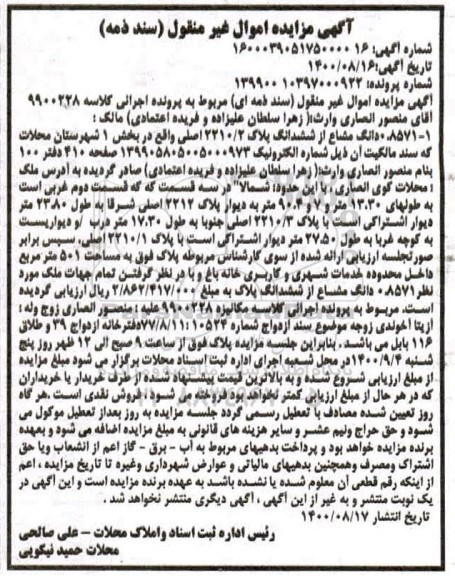 آگهی مزایده اموال غیر منقول (سند ذمه)
شماره آگهی: ۱۶ ۱۶۰۰۰۳۹۰۵۱۷۵۰۰۰۰
تاریخ آگهی: ۱۴۰۰/۰۸/۱۶
شماره پرونده: ۱۰۳۹۷۰۰۰۹۲۲ ۱۳۹۹۰۰
آگهی مزایده اموال غیر منقول (سند ذمه ای) مربوط به پرونده اجرائی کلاسه ۹۹۰۰۲۲۸
آقای منصور انصاری وراث:( زهرا سلطان علیزاده و فریده اعتمادی) مالک :
۱-۰.۸۵۷۱دانگ مشاع از ششدانگ پلاک ۲۲۱۰/۲ اصلی واقع در بخش ۱ شهرستان محلات
که سند مالکیت آن ذیل شماره الکترونیک ۱۳۹۹۰۵۸۰۵۰۰۵۰۰۰۹۷۳ صفحه ۴۱۰ دفتر ۱۰۰
بنام منصور انصاری وراث:( زهرا سلطان علیزاده و فریده اعتمادی) صادر گردیده به آدرس ملک
: محلات کوی انصاری، با این حدود: شمالا" در سه قسمت که که قسمت دوم غربی است
به طولهای ۱۳.۳۰ متر و ۴.۹۰ و ۹.۱۷ متر به دیوار پلاک ۲۲۱۲ اصلی شرقا به طول ۲۳.۸۰ متر
دیوار اشتراکی است با پلاک ۲۲۱۰/۳ اصلی جنوبا به طول ۱۷.۳۰ متر درب و دیواریست
به کوچه غربا به طول ۲۷.۵۰ متر دیوار اشتراکی است با پلاک ۲۲۱۰/۱ اصلی، سپس برابر
صورتجلسه ارزیابی ارائه شده از سوی کارشناس مربوطه پلاک فوق به مساحت ۵۰۱ متر مربع
داخل محدوده خدمات شهری و کاربری خانه باغ و با در نظر گرفتن تمام جهات ملک مورد
نظر ۰.۸۵۷۱ دانگ مشاع از ششدانگ پلاک به مبلغ ۲/۸۶۲/۴۱۷/۰۰۰ ریال ارزیابی گردیده
است. مربوط به پرونده اجرائی کلاسه مکانیزه ۹۹۰۰۲۲۸ علیه : منصور انصاری زوج وله :
آزیتا آخوندی زوجه موضوع سند ازدواج شماره ۱۰۵۲۴-۷۷/۸/۱۱دفترخانه ازدواج ۳۹ و طلاق
۱۱۶ بابل می باشد . بنابراین جلسه مزایده پلاک فوق از ساعت ۹ صبح الی ۱۲ ظهر روز پنج
شنبه ۱۴۰۰/۹/۴ در محل شعبه اجرای اداره ثبت اسناد محلات برگزار می شود مبلغ مزایده
از مبلغ ارزیابی شروع شده و به بالاترین قیمت پیشنهاد شده از طرف خریدار یا خریداران
که در هر حال از مبلغ ارزیابی کمتر نخواهد بود فروخته می شود . فروش نقدی است .هر گاه
روز تعیین شده مصادف با تعطیل رسمی گردد جلسه مزایده به روز بعداز تعطیل موکول می
شود و حق حراج ونیم عشر و سایر هزینه های قانونی به مبلغ مزایده اضافه می شود و بعهده
برنده مزایده خواهد بود و پرداخت بدهیهای مربوط به آب - برق - گاز اعم از انشعاب ویا حق
اشتراک ومصرف وهمچنین بدهیهای مالیاتی و عوارض شهرداری وغیره تا تاریخ مزایده ، اعم
از اینکه رقم قطعی آن معلوم شده یا نشده باشد به عهده برنده مزایده است و این آگهی در
یک نوبت منتشر و به غیر از این آگهی ، آگهی دیگری منتشر نخواهد شد .
تاریخ انتشار ۱۴۰۰/۰۸/۱۷
رئیس اداره ثبت اسناد واملاک محلات – علی صالحی
محلات حمید نیکویی